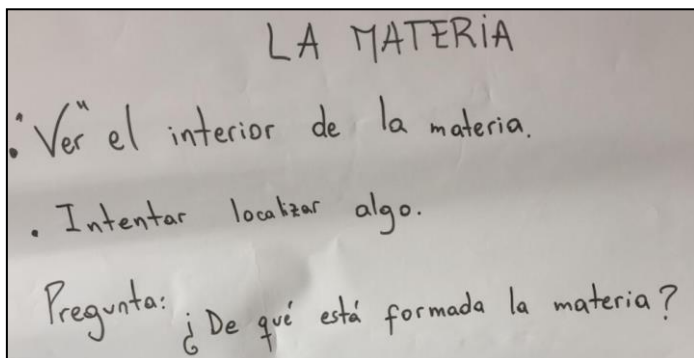 LA MATERIA
. "Ver" el interior de la materia.
. Intentar localizar algo.
Pregunta: ¿De qué está formada la materia?